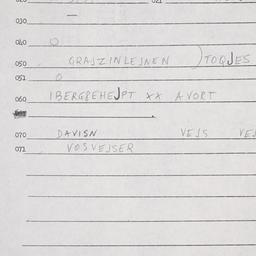 021
030
040
050 GRAJZINLEJNEN )TOQJES
051
060 IBERGREHEJPT XX AVORT
070 DAVISN VEJS VEJ
071 VOSVEJSER